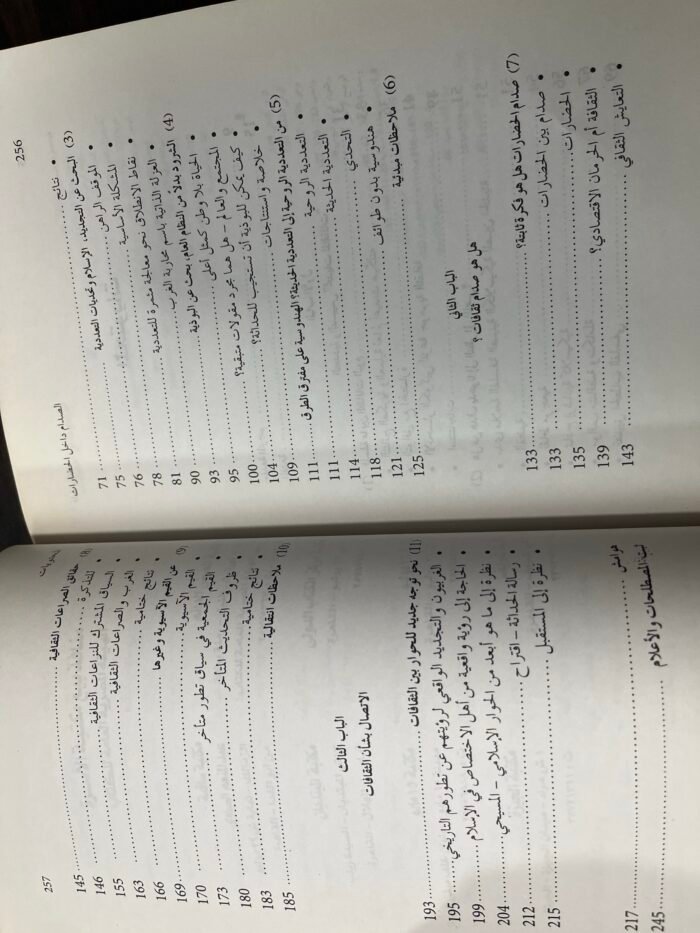 256 الصدام داخل الحضارات
• نتائج ........ 71
(3) البحث عن التجديد، الإسلام وتحديات التعددية ........ 75
• الموقف الراهن ........ 76
• المشكلة الأساسية ........ 78
• نقاط الانطلاق نحو معالجة مثمرة للتعددية ........ 81
• العزلة الذاتية باسم محاربة الغرب ........ 90
(4) الشرود بدلاً من النظام العام، بحث عن البوذية ........ 93
• الحياة بلا وطن كمثل أعلى ........ 95
• المجتمع والعالم – هل هما مجرد مقولات متبقية؟ ........ 100
• كيف يمكن للبوذية أن تستجيب للحداثة؟ ........ 104
• خلاصة واستنتاجات ........ 109
(5) من التعددية الروحية إلى التعددية الحديثة؟ الهندوسية على مفترق الطرق ........ 111
• التعددية الروحية ........ 111
• التعددية الحديثة ........ 114
• التحدي ........ 118
• هندوسية بدون طوائف ........ 121
(6) ملاحظات مبدئية ........ 125
الباب الثاني
هل هو صدام ثقافات ؟
(7) صدام الحضارات هل هو فكرة ثابتة؟ ........ 133
• صدام بين الحضارات ........ 133
• الحضارات ........ 135
• الثقافة أم الحرمان الاقتصادي؟ ........ 139
• التعايش الثقافي ........ 143
257
(8) حقائق الصراعات الثقافية ........ 145
• للتذكرة ........ 146
• السياق المشترك للنزاعات الثقافية ........ 155
• الغرب والصراعات الثقافية ........ 163
• نتائج ختامية ........ 166
(9) عن القيم الآسيوية وغيرها ........ 169
• القيم الآسيوية ........ 170
• القيم الجمعية في سياق تطور متأخر ........ 173
• ظروف التحديث المتأخر ........ 180
• نتائج ختامية ........ 183
(10) ملاحظات انتقالية ........ 185
الباب الثالث
الاتصال بشأن الثقافات
(11) نحو توجه جديد للحوار بين الثقافات ........ 193
• الغربيون والتجديد الواقعي لرؤيتهم عن تطورهم التاريخي ........ 195
• الحاجة إلى رؤية واقعية من أهل الاختصاص في الإسلام ........ 199
• نظرة إلى ما هو أبعد من الحوار الإسلامي – المسيحي ........ 204
• رسالة الحداثة – اقتراح ........ 212
• نظرة إلى المستقبل ........ 215
هوامش ........ 217
ثبت المصطلحات والأعلام ........ 245